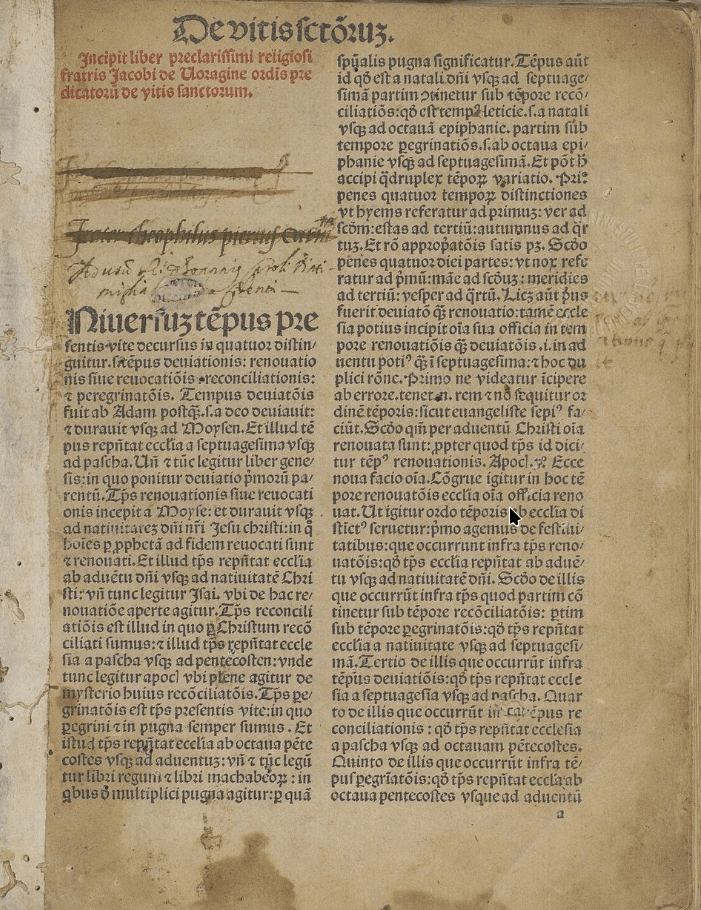 De vitis sctõruz.
Incipit liber preclarissimi religiosi
fratris Jacobi de Uoragine ordĩs pre
dicatorũ de vitis sanctorum.
Niuersuz tẽpus pre
sentis vite decursus in quatuor distin⸗
guitur. s. tẽpus deuiationis: renouatio
nis siue reuocatiõis ⁊ reconciliationis:
⁊ peregrinatõis. Tempus deuiatõis
fuit ab Adam postq̃. s. a deo deuiauit:
⁊ durauit vsq̃ ad Moysen. Et illud tẽ
pus repñtat ecclĩa a septuagesima vsq̃
ad pascha. Uñ ⁊ tũc legitur liber gene⸗
sis: in quo ponitur deuiatio p̃morũ pa⸗
rentũ. Tp̃s renouationis siue reuocati
onis incepit a Moyse: et durauit vsq̃
ad natiuitatez dñi nr̃i Jesu christi: in q̃
hoĩes ꝑ ꝓphetã ad fidem reuocati sunt
⁊ renouati. Et illud tp̃s repñtat ecclĩa
ab aduẽtu dñi vsq̃ ad natiuitatẽ Chri
sti: vñ tunc legitur Isai. vbi de hac re⸗
nouatiõe aperte agitur. Tp̃s reconcili
atiõis est illud in quo ꝑ Christum recõ
ciliati sumus: ⁊ illud tp̃s rep̃ntat eccle
sia a pascha vsq̃ ad pentecosten: vnde
tunc legitur apocꝉ vbi plene agitur de
mysterio huius recõciliatõis. Tp̃s pe⸗
grinatõis est tp̃s presentis vite: in quo
ꝑegrini ⁊ in pugna semper sumus. Et
istud tp̃s repñtat ecclĩa ab octaua pẽte
costes vsq̃ ad aduentuz: vñ ⁊ tũc legit̃
tur libri regum ⁊ libri machabeoꝝ: in
q̃bus ð multiplici pugna agitur: ꝑ quã
spũalis pugna significatur. Tẽpus aũt
id qð est a natali dñi vsq̃ ad septuage⸗
simã partim ꝯtinetur sub tẽpore recõ⸗
ciliatiõs: qð est temp⁹ leticie. s. a natali
vsq̃ ad octauã epiphanie. partim sub
tempore ꝑegrinatiõs. s. ab octaua epi⸗
phanie vsq̃ ad septuagesimã. Et põt h̃
accipi q̃druplex tẽpoꝝ variatio. Pri⸗
penes quatuor tempoꝝ distinctiones
vt hyems referatur ad primuz: ver ad
scðm: estas ad tertiũ: autumnus ad q̃r
tuz. Et rõ apprõpatõis satis pꝫ. Scðo
penes quatuor diei partes: vt nox refe
ratur ad p̃mũ: mãe ad scðuz: meridies
ad tertiũ: vesper ad q̃rtũ. Licꝫ aũt p̃us
fuerit deuiatõ q̃ renouatio: tamẽ eccle
sia potius incipit oĩa sua officia in tem
pore renouatiõis q̃ deuiatõis. i. in ad
uentu poti⁹ q̃ ĩ septuagesima: ⁊ hoc du
plici rõne. Primo ne videatur ĩcipere
ab errore. tenet .n. rem ⁊ nõ seq̃itur or
dinẽ tẽporis: sicut euangeliste sepi⁹ fa⸗
ciũt. Scðo qm̃ per aduentũ Christi oĩa
renouata sunt: ꝓpter quod tp̃s id dici⸗
tur tẽp⁹ renouationis. Apocꝉ. Ecce
noua facio oĩa. Cõgrue igitur in hoc tẽ
pore renouatõis ecclĩa oĩa officia reno
uat. Ut igitur ordo tẽporis ab ecclĩa di
stict⁹ seruetur: p̃mo agemus de festiui⸗
tatibus: que occurrunt infra tp̃s reno⸗
uatõis: qð tp̃s ecclĩa repñtat ab aduẽ⸗
tu vsq̃ ad natiuitatẽ dñi. Scðo de illis
que occurrũt infra tp̃s quod partim cõ
tinetur sub tẽpore recõciliatõis: ꝑtim
sub tẽpore ꝑegrinatõis: qð tp̃s repñtat
ecclĩa a natiuitate vsq̃ ad septuagesi⸗
mã. Tertio de illis que occurrũt infra
tẽpus deuiatiõis: qð tp̃s repñtat eccle
sia a septuagesĩa vsq̃ ad pascha. Quar
to de illis que occurrũt infra tẽpus re
conciliationis: qð tp̃s repñtat ecclesia
a pascha vsq̃ ad octauam pẽtecostes.
Quinto de illis que occurrũt infra tẽ⸗
pus ꝑegrĩatõis: qð tp̃s repñtat ecclĩa ab
octaua pentecostes vsque ad aduentũ
a